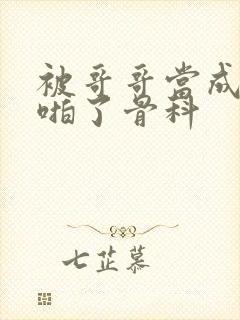 被哥哥當成
啪了骨科
七芷慕